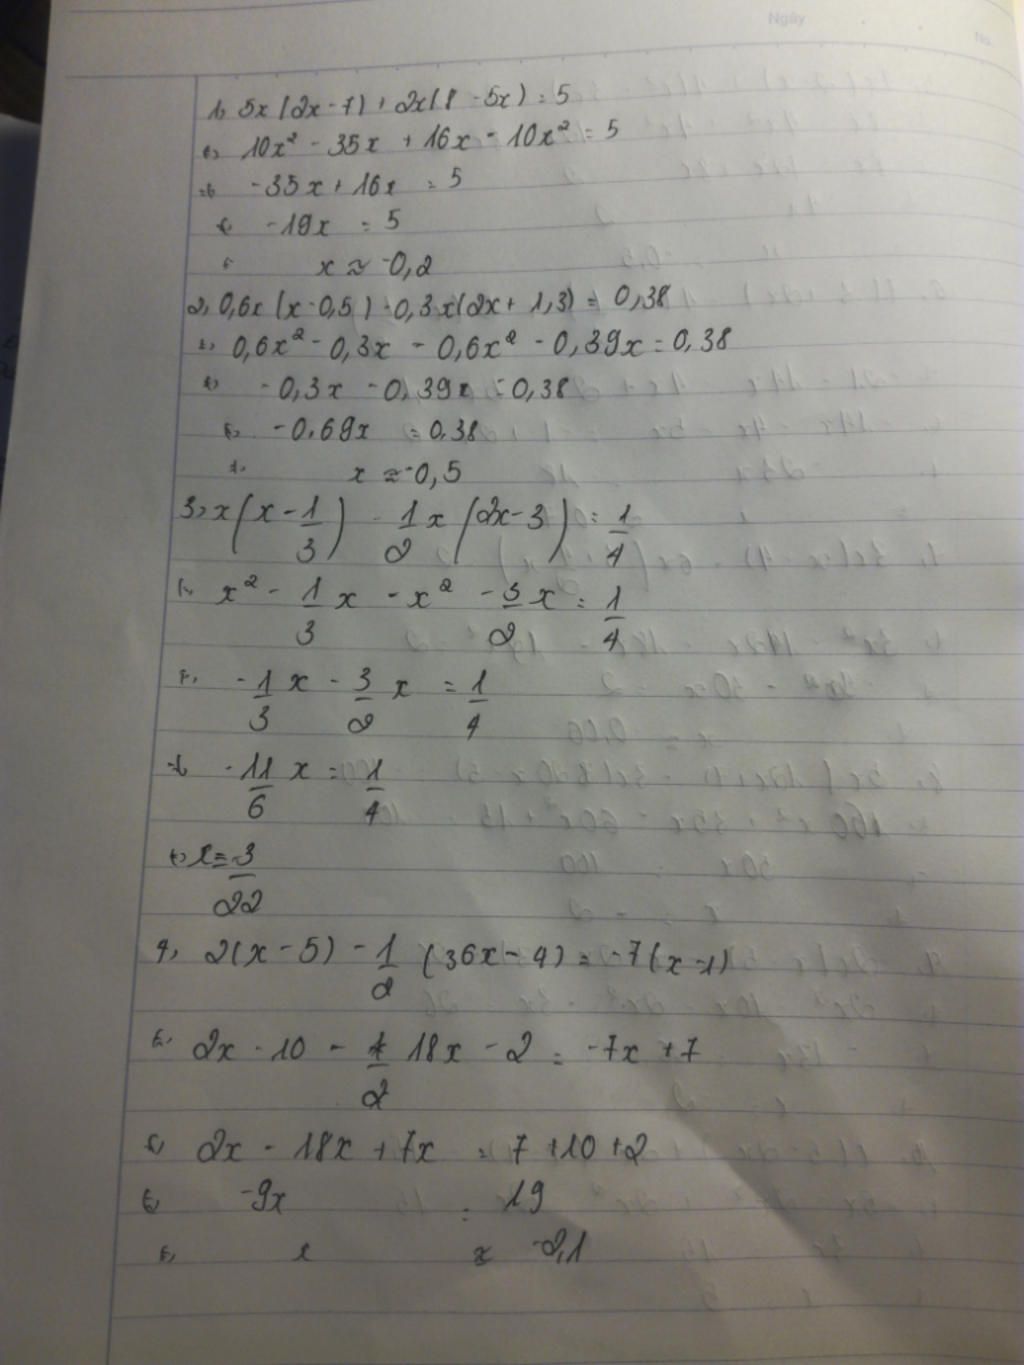 Ngày
No.
1, 5x(2x-7)+2x(8-5x)=5
<=> 10x² - 35x + 16x - 10x² = 5
<=> -35x + 16x = 5
<=> -19x = 5
<=> x ≈ -0,2
2, 0,6x(x-0,5)-0,3x(2x+1,3)=0,38
<=> 0,6x² - 0,3x - 0,6x² - 0,39x = 0,38
<=> -0,3x - 0,39x = 0,38
<=> -0,69x = 0,38
<=> x ≈ -0,5
3, x(x - 1/3) - 1/2 x(2x-3) = 1/4
<=> x² - 1/3 x - x² - 3/2 x = 1/4
<=> -1/3 x - 3/2 x = 1/4
<=> -11/6 x = 1/4
<=> x = -3/22
4, 2(x-5) - 1/2 (36x-4) = -7(x-1)
<=> 2x - 10 - 18x - 2 = -7x + 7
<=> 2x - 18x + 7x = 7 + 10 + 2
<=> -9x = 19
<=> x ≈ -2,1